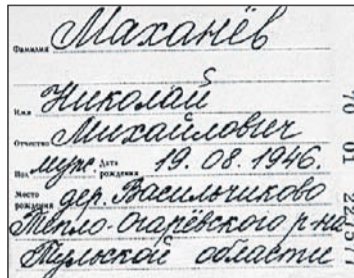 Фамилия Маханёв
Имя Николай
Отчество Михайлович
Пол муж. Дата рождения 19.08.1946.
Место рождения дер. Васильчиково
Тепло-Огарёвского р-на
Тульской области
70 01